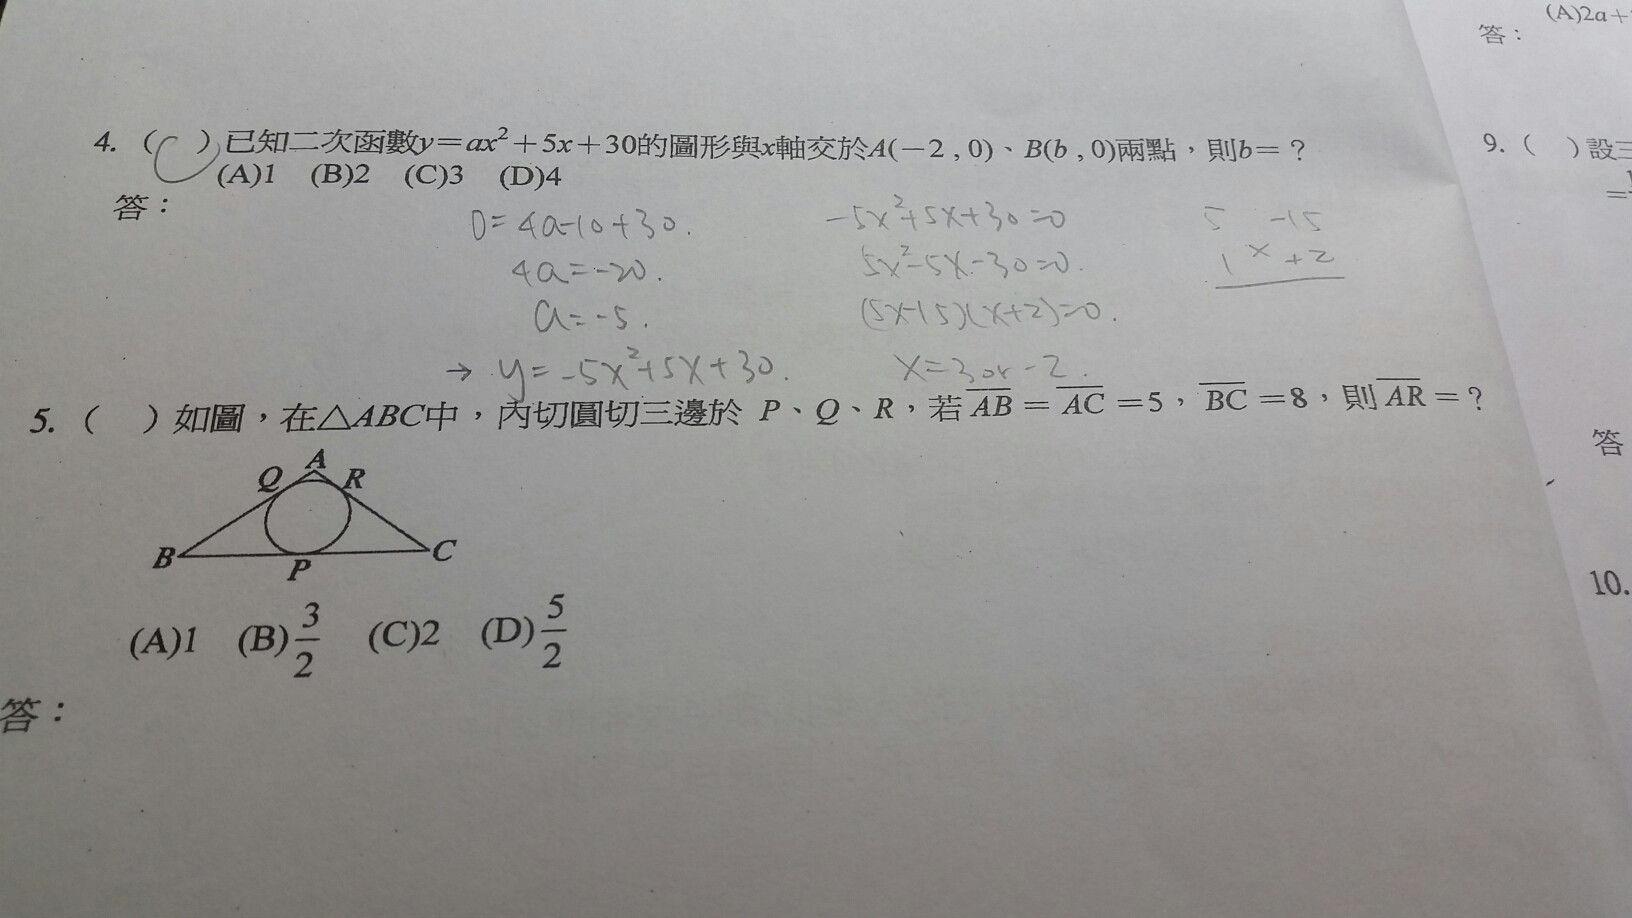 (A)2a+
答：
4. ( C ) 已知二次函數y＝ax²＋5x＋30的圖形與x軸交於A(－2 , 0)、B(b , 0)兩點，則b＝？
(A)1 (B)2 (C)3 (D)4
答：
0=4a-10+30.
4a=-20.
a=-5.
→ y=-5x²+5x+30.
-5x²+5x+30=0
5x²-5x-30=0.
(5x-15)(x+2)=0.
x=3 or -2.
5 -15
1 x +2
5. ( ) 如圖，在△ABC中，內切圓切三邊於 P、Q、R，若 AB = AC =5，BC =8，則 AR = ?
A
Q R
B C
P
(A)1 (B) 3/2 (C)2 (D) 5/2
答：
9. ( ) 設三
=
答
10.